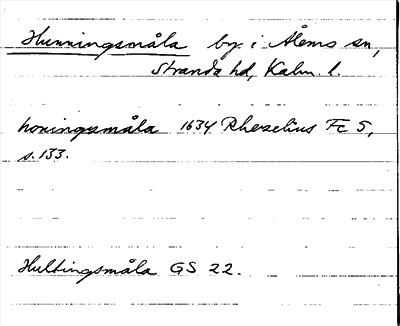 Hunningsmåla by i Ålems sn,
Stranda hd, Kalm. l.
honingzmåla 1634 Rhezelius Fc 5,
s. 133.
Hultingsmåla GS 22.